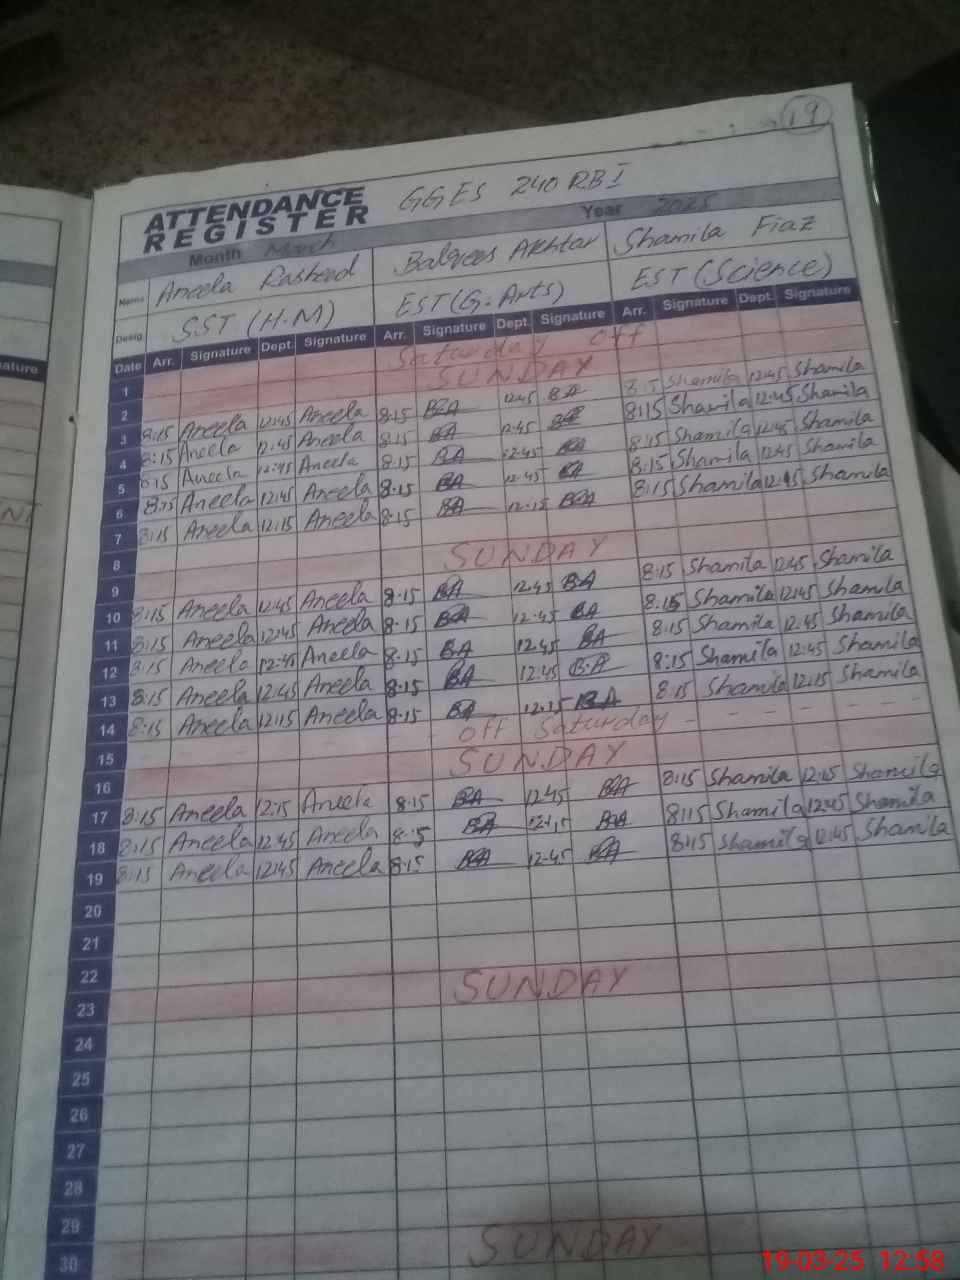 19
ATTENDANCE
REGISTER
GGES 240 RB I
Month March Year 2025
Name Aneela Rasheed Balqees Akhtar Shamila Fiaz
Desig SST (H.M) EST (G.Arts) EST (Science)
Date Arr. Signature Dept. Signature Arr. Signature Dept. Signature Arr. Signature Dept. Signature
1 Saturday Off
2 SUNDAY
3 8:15 Aneela 12:45 Aneela 8:15 BA 12:45 BA 8:15 Shamila 12:45 Shamila
4 8:15 Aneela 12:45 Aneela 8:15 BA 12:45 BA 8:15 Shamila 12:45 Shamila
5 8:15 Aneela 12:45 Aneela 8:15 BA 12:45 BA 8:15 Shamila 12:45 Shamila
6 8:15 Aneela 12:45 Aneela 8:15 BA 12:45 BA 8:15 Shamila 12:45 Shamila
7 8:15 Aneela 12:15 Aneela 8:15 BA 12:15 BA 8:15 Shamila Shamila
8
9 SUNDAY
10 8:15 Aneela 12:45 Aneela 8:15 BA 12:45 BA 8:15 Shamila 12:45 Shamila
11 8:15 Aneela 12:45 Aneela 8:15 BA 12:45 BA 8:15 Shamila 12:45 Shamila
12 8:15 Aneela 12:45 Aneela 8:15 BA 12:45 BA 8:15 Shamila 12:45 Shamila
13 8:15 Aneela 12:45 Aneela 8:15 BA 12:45 BA 8:15 Shamila 12:45 Shamila
14 8:15 Aneela 12:15 Aneela 8:15 BA 12:15 BA 8:15 Shamila 12:15 Shamila
15 Off Saturday
16 SUNDAY
17 8:15 Aneela Aneela 8:15 BA 12:45 BA 8:15 Shamila Shamila
18 8:15 Aneela 12:45 Aneela BA BA 8:15 Shamila 12:45 Shamila
19 8:15 Aneela 12:45 Aneela 8:15 BA 12:45 BA 8:15 Shamila 12:45 Shamila
20
21
22
23 SUNDAY
24
25
26
27
28
29
30 SUNDAY
19-03-25 12:58